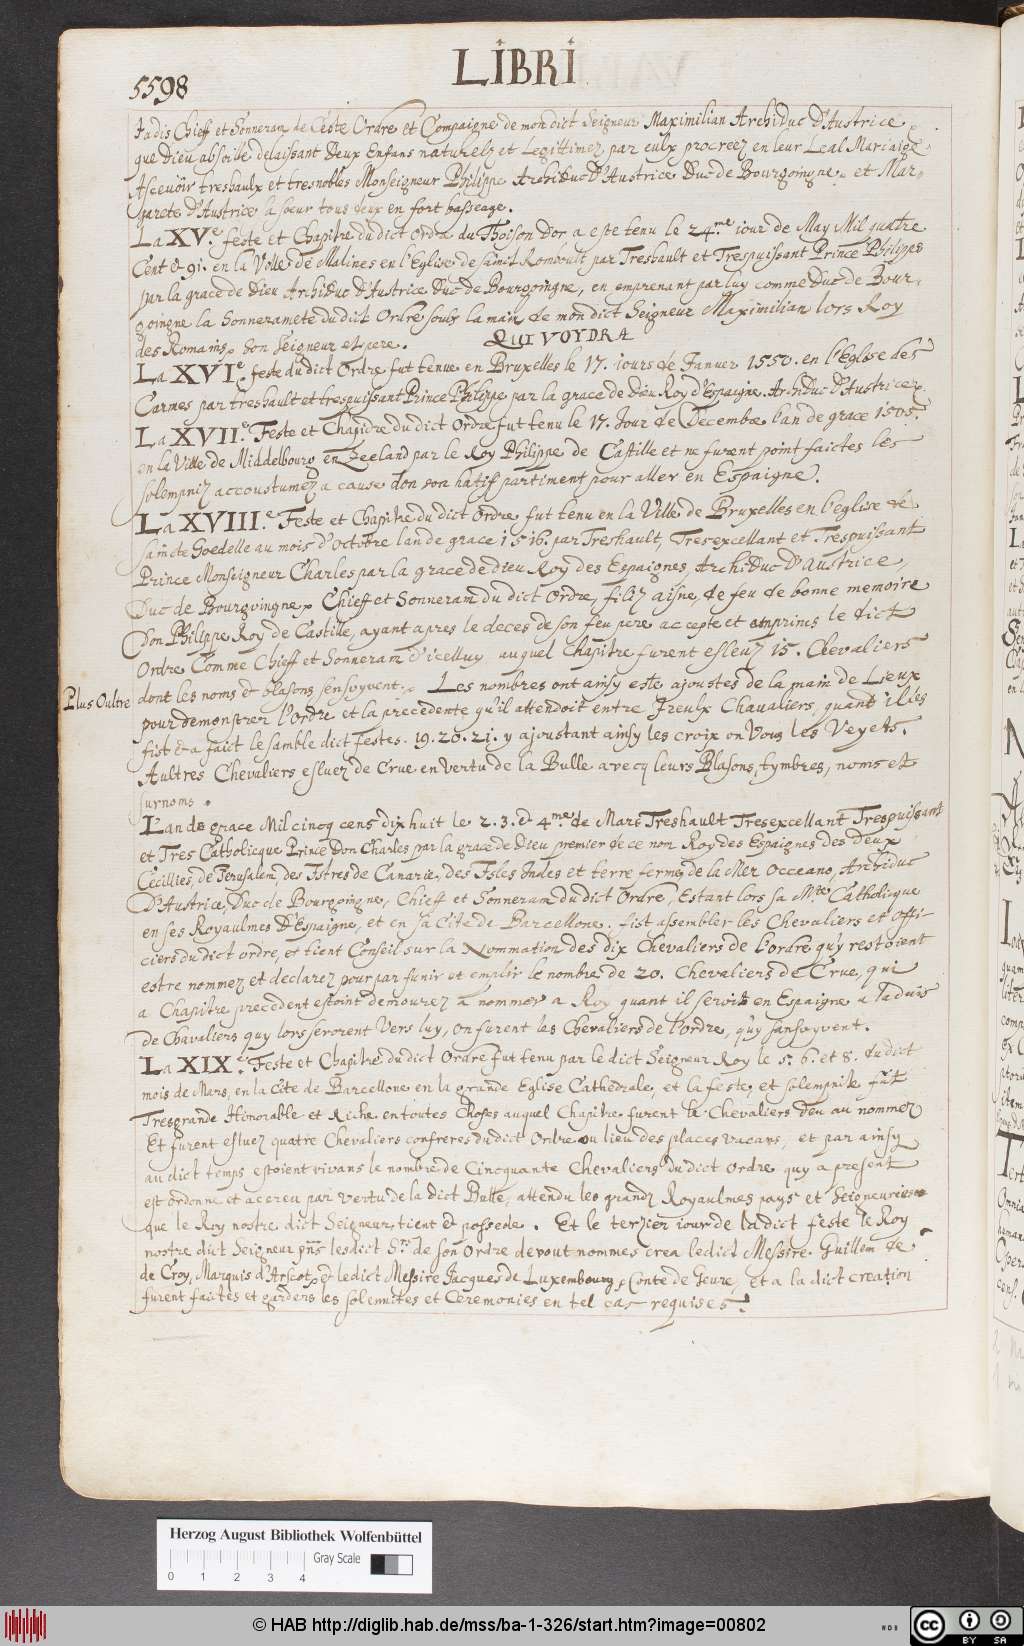 5598
LIBRI
Jadis Chieff et Sonneram de Ceste Ordre et Compaigne de mondict Seigneur Maximilian Archiduc D'Austrice
que Dieu absoille delaissant Deux Enfans naturelz et Legittimez par eulx procreez en leur Leal Mariaige
Ascevoir treshaulx et tresnobles Monseigneur Philippe Archiduc D'Austrice Duc de Bourgoingne et Mar-
garete d'Austrice la soeur tous deux en fort bass eage.
La XV.e feste et Chapitre du dict Ordre du Thoison Dor a este tenu le 24.me iour de May Mil quatre
Cent & 91. en la Ville de Malines en l'Eglise de sainct Romboult par Treshault et Trespuissant Prince Philippe
par la grace de Dieu Archiduc D'Austrice Duc de Bourgoingne, en emprenant par luy comme Duc de Bour-
goingne la Sonneramete du dict Ordre soubz la main de mon dict Seigneur Maximilian lors Roy
des Romains, son seigneur et pere.
QUI VOYDRA
La XVI.e feste du dict Ordre fut tenue en Bruxelles le 17. iours de Januer 1550. en l'Eglise des
Carmes par treshault et trespuissant Prince Philippe par la grace de Dieu Roy d'Espaigne. Archiduc D'Austrice
La XVII.e Feste et Chapitre du dict Ordre fut tenu le 17. Jour de Decembre l'an de grace 1505.
en la Ville de Middelbourg en Zeeland par le Roy Philippe de Castille et ne furent point faictes les
solempniz accoustumez a cause don son hatif partiment pour aller en Espaigne.
La XVIII.e Feste et Chapitre du dict Ordre fut tenu en la Ville de Bruxelles en l'eglise de
saincte Goedelle au mois d'octobre lan de grace 1516. par Treshault, Tresexcellant et Trespuissant
Prince Monseigneur Charles par la grace de Dieu Roy des Espaignes, Archiduc D'Austrice,
Duc de Bourgoingne, Chieff et Sonneram du dict Ordre, filz aisne, de feu de bonne memoire
don Philippe Roy de Castille, ayant apres le deces de son feu pere accepte et emprins le dict
Ordre Comme Chieff et Sonneram d'icelluy auquel Chapitre furent esleuz 15. Chevaliers
Plus Oultre
dont les noms et blasons sensvyvent. Les nombres ont ainsy este ajoustes de la main de Lieux
pour demonstrer l'Ordre et la precedente qu'il attendoit entre Jceulx Chavaliers, quant il les
fist & a faict le samble dict festes. 19. 20. 21. y ajoustant ainsy les croix ou Vous les Veyets.
Aultres Chevaliers esluez de Crue en vertu de la Bulle avecq leurs Blasons, tymbres, noms et
surnoms.
L'an de grace Mil cincq cens dixhuit le 2. 3. et 4.me de Mars Treshault Tresexcellant Trespuissant
et Tres Catholicque Prince Don Charles par la grace de Dieu premier de ce nom Roy des Espaignes des deux
Cecillies, de Jerusalem, des Jsles de Canarie, des Jsles Indes et terre ferme de la Mer Occeano, Archiduc
D'Austrice, Duc de Bourgoingne, Chieff et Sonneram du dict Ordre, Estant lors sa M.te Catholicque
en ses Royaulmes D'Espaigne, et en sa Cite de Barcellone. fist assembler les Chevaliers et offi-
ciers du dict ordre, et tient Conseil sur la Nommation des dix Chevaliers de l'ordre qu'y restoient
estre nommez et declarez pour par funir et emplir le nombre de 20. Chevaliers de Crue, qui
a Chapitre precedent estoint demourez a nommer a Roy quant il servit en Espaigne a l'aduis
de Chavaliers quy lors seroient Vers luy, on furent les Chevaliers de l'ordre, qu'y sansvyvent.
La XIX.e Feste et Chapitre du dict Ordre fut tenu par le dict Seigneur Roy le 5. 6. et 8. du dict
mois de Mars, en la Cite de Barcellone en la grande Eglise Cathedrale, et la feste, et solempnite fut
Tresgrande Honorable et Riche en toutes Choses auquel Chapitre furent le Chevaliers deu au nommez
Et furent esluez quatre Chevaliers confreres du dict Ordre ou lieu des places vacans, et par ainsy
au dict temps estoient vivans le nombre de Cincquante Chevaliers du dict Ordre quy a present
est ordonne et accreu par vertu de la dict Bulle, attendu les grandz Royaulmes pays et Seigneuries
que le Roy nostre dict Seigneur tient et possede. Et le terzier iour de la dict feste le Roy
nostre dict Seigneur pñs lesdict Srs de son Ordre devout nommes crea ledict Messire Guillem de
de Croy, Marquis d'Arscot, et ledict Messire Jacques de Luxembourg, Conte de Gevre, et a la dict creation
furent faictes et gardees les solennites et Ceremonies en tel cas requises.
Herzog August Bibliothek Wolfenbüttel
Gray Scale
0 1 2 3 4
© HAB http://diglib.hab.de/mss/ba-1-326/start.htm?image=00802
cc BY SA